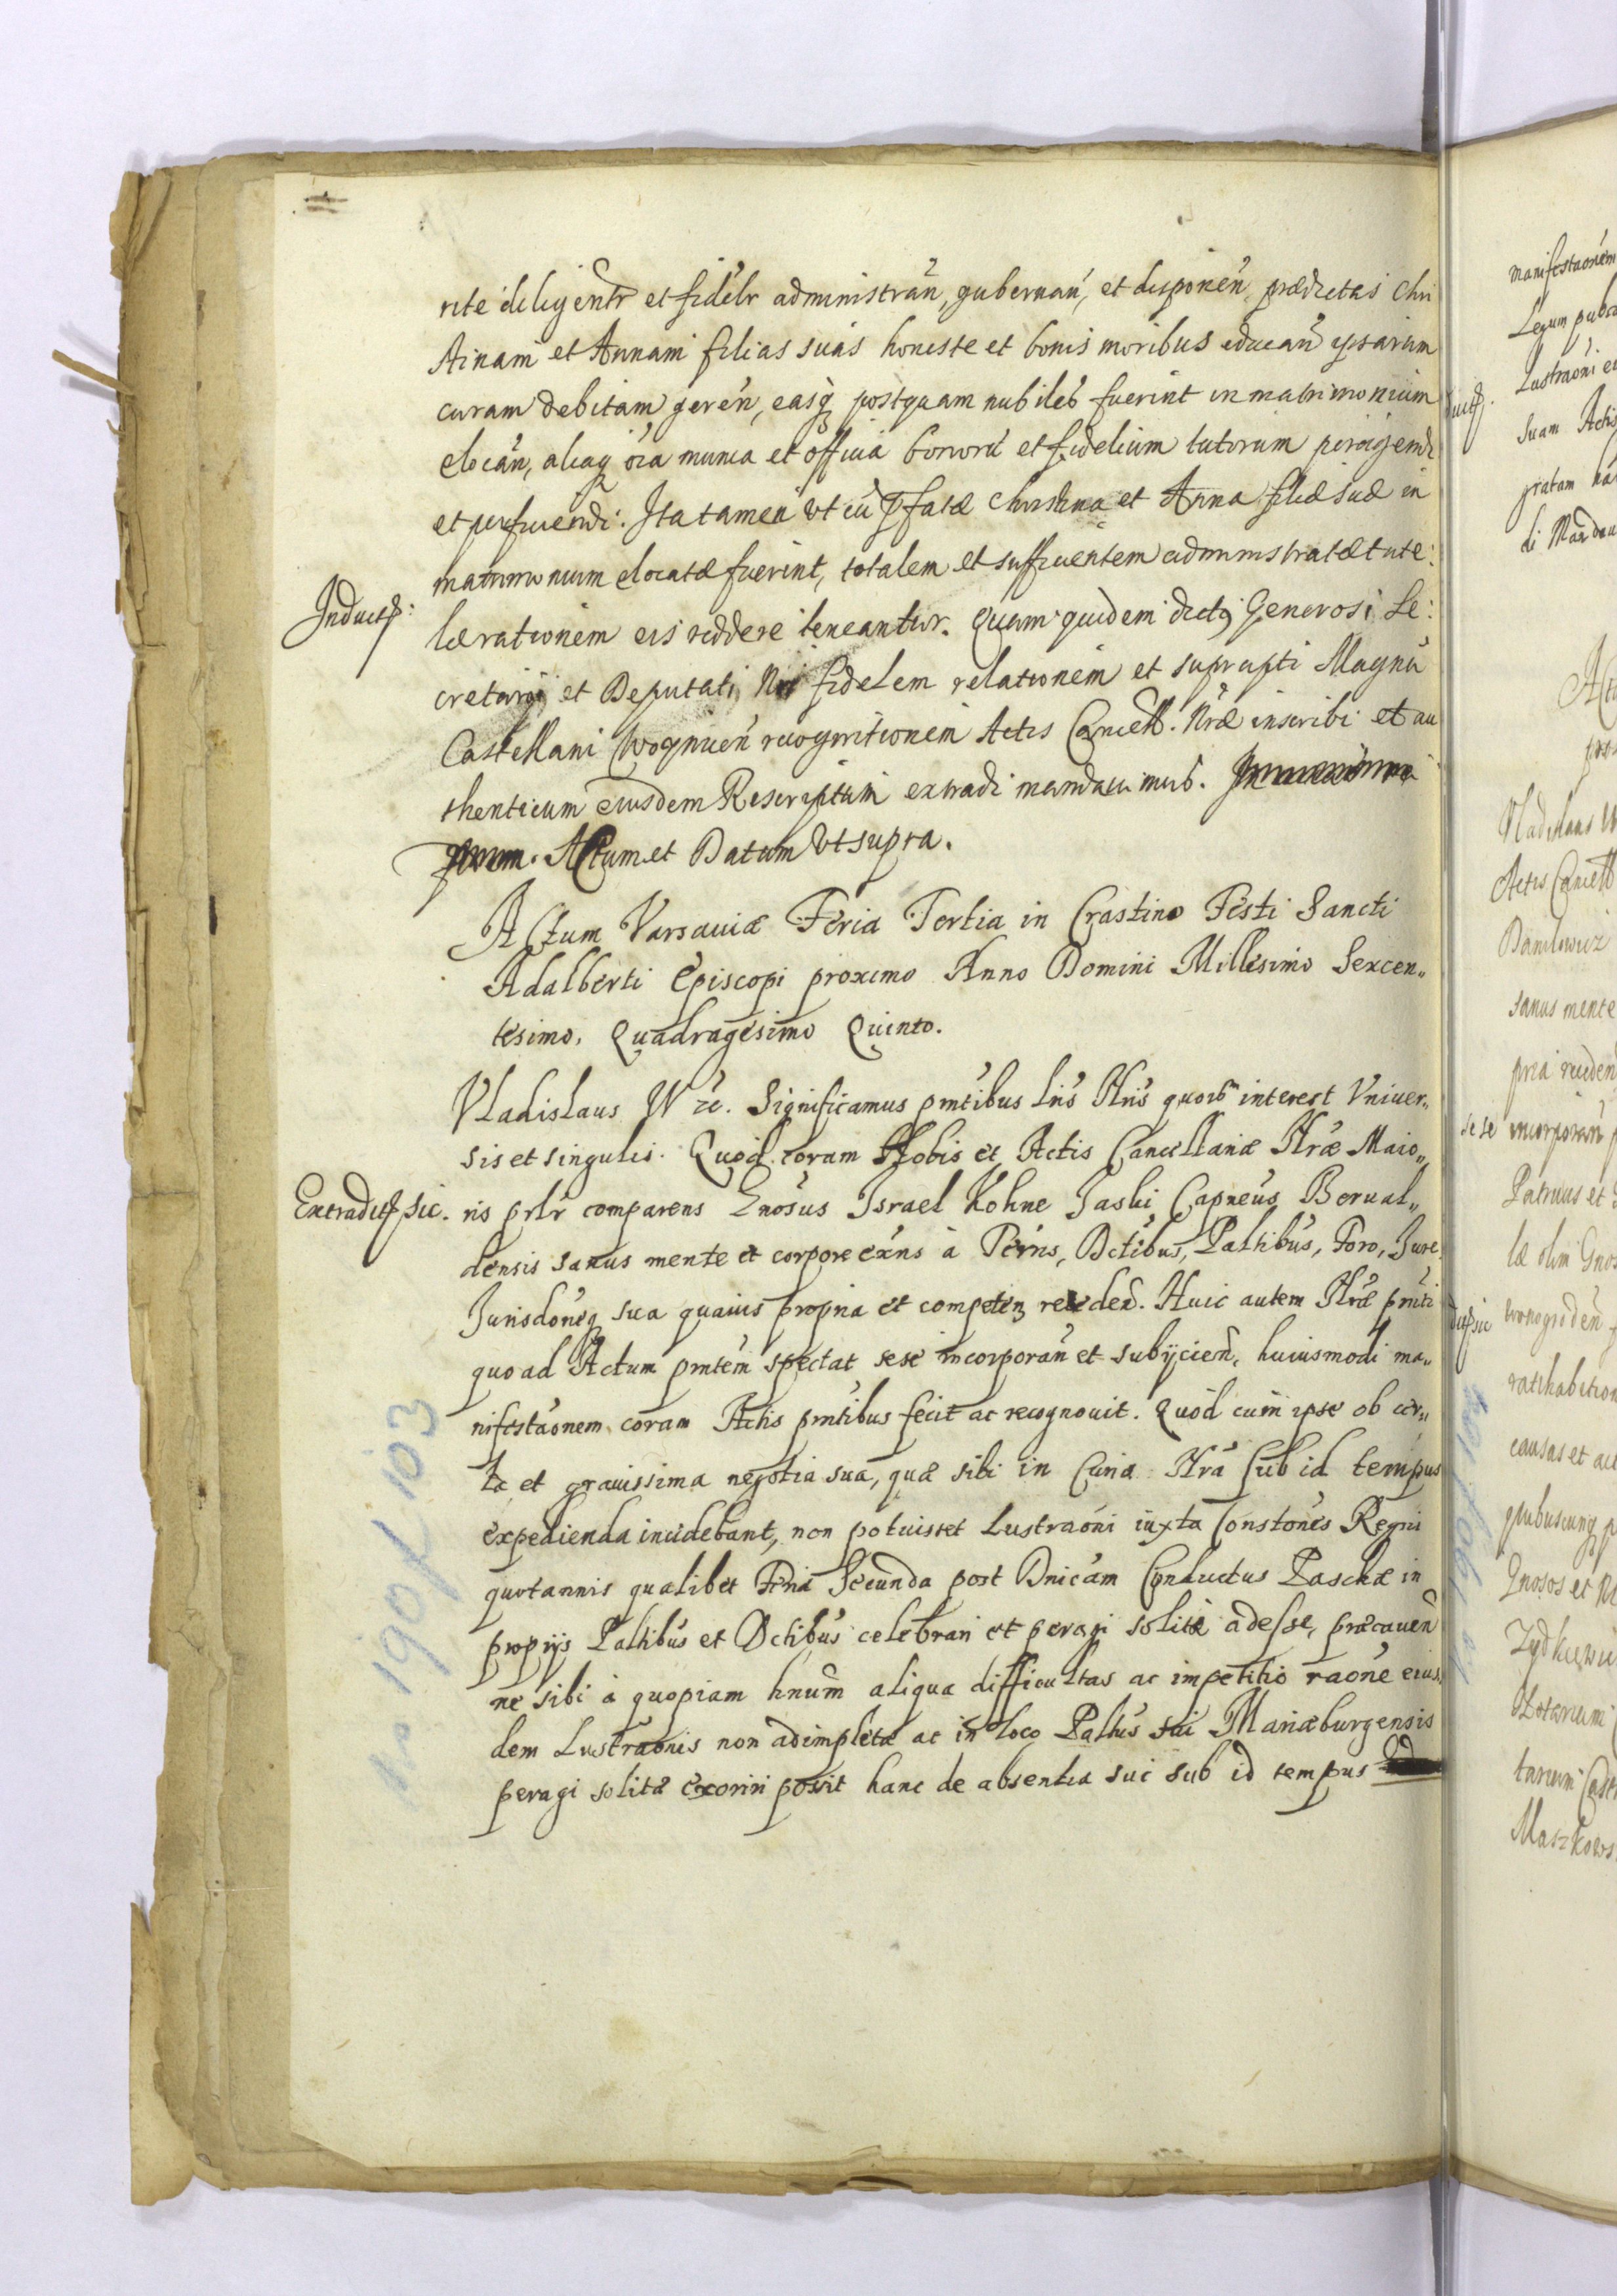 rite diligentr et fidelr administran, gubernan, et disponen, prædictas Chri
stinam et Annam filias suas honeste et bonis moribus educan ipsarum
curam debitam geren, easq postquam nubiles fuerint in matrimonium
elocan, aliaq oia munia et officia bonorū et fidelium tutorum peragendi
et perficiendi. Ita tamen ut cū pfatæ Christina et Anna filiæ suæ in
matrimonium elocatæ fuerint, totalem et sufficientem administratæ tute:
Inductę:
læ rationem eis reddere teneantur. Quam quidem dictę Generosi Se:
cretarij et Deputati Nri fidelem relationem et suprapti Magnci
Castellani Woynicen recognitionem Actis Cancell. Nræ inscribi et au
thenticum eiusdem Rescriptum extradi mandauimus.
Actum et Datum ut supra.
Actum Varsauiæ Feria Tertia in Crastino Festi Sancti
Adalberti Episcopi proximo Anno Domini Millesimo Sexcen„
tesimo, Quadragesimo Quinto.
Vladislaus IV zc. Significamus pntibus Lris Nris quorb interest Vniuer„
sis et singulis. Quod coram Nobis et Actis Cancellariæ Nræ Maio„
Extraditę sic.
ris prlr comparens Gnosus Israel Kohne Jaski Capneus Berual„
densis sanus mente et corpore exns à Terris, Dctibus, Paltibus, Foro, Jure
Jurisdoneq sua quauis propria et competen recedeñ. Huic autem Nræ pnti
quo ad Actum pntem spectat sese incorporañ et subijcieñ, huiusmodi ma„
nifestaonem coram Actis pntibus fecit ac recognouit. Quod cum ipse ob cer„
ta et grauissima negotia sua, quæ sibi in Curia Nra sub id tempus
expedienda incidebant, non potuisset Lustraoni iuxta Constones Regni
quotannis qualibet Feria Secunda post Dnicam Conductus Paschæ in
proprijs Paltibus et Dctibus celebrari et peragi solitæ adesse, præcaueñ
ne sibi à quopiam hnum aliqua difficultas ac impetitio raone eius„
dem Lustraonis non adimpletæ ac in loco Paltus sui Mariæburgensis
peragi solitæ exoriri possit hanc de absentia sui sub id tempus
No 190 f 103
manifestaonem
Legum pub
Lustraoni
suam Actis
gratam
Vladislaus
Actis Cancell
Danilowicz
sanus mente
pria receden
sese incorporan
Patruus et
læ olim Gnos
ratihabition
causas et
quibuscunq
Gnosos et
Notarium
Maszkows